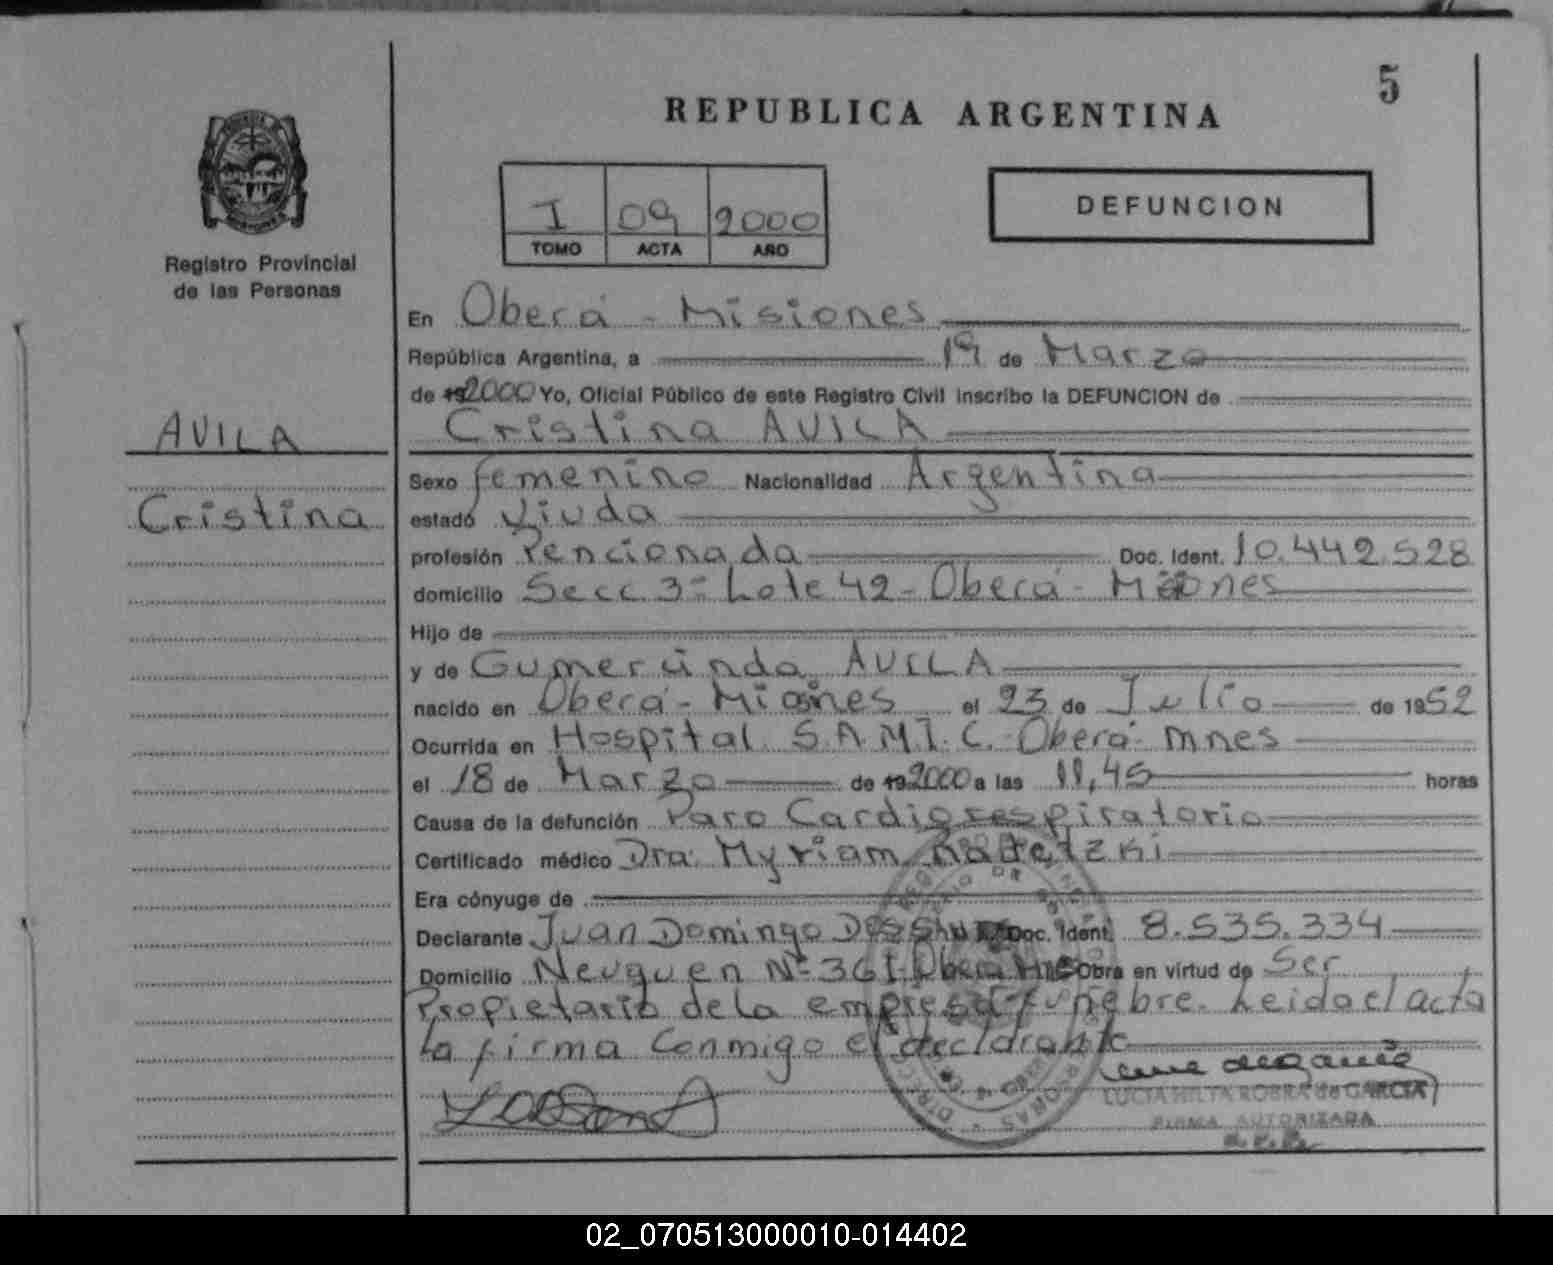 5
REPUBLICA ARGENTINA
I 09 2000
TOMO ACTA AÑO
DEFUNCION
Registro Provincial
de las Personas
AVILA
Cristina
En Oberá - Misiones
República Argentina, a 19 de Marzo
de 192000 Yo, Oficial Público de este Registro Civil inscribo la DEFUNCION de
Cristina AVILA
Sexo femenino Nacionalidad Argentina
estado Viuda
profesión Pencionada Doc. Ident. 10.442.528
domicilio Secc. 3ª Lote 42 - Oberá - Misiones
Hijo de
y de Gumercinda AVILA
nacido en Oberá - Misiones el 23 de Julio de 1952
Ocurrida en Hospital S.A.M.I.C. - Oberá - Mnes
el 18 de Marzo de 192000 a las 11,45 horas
Causa de la defunción Paro Cardiorespiratorio
Certificado médico Dra. Myriam
Era cónyuge de
Declarante Juan Domingo Doc. Ident. 8.535.334
Domicilio Neuquen Nº 361 - Oberá Mnes Obra en virtud de Ser
Propietario de la empresa funebre. Leida el acta
la firma conmigo el declarante
LUCIA HILTA ROBRA de GARCIA
FIRMA AUTORIZADA
02_070513000010-014402